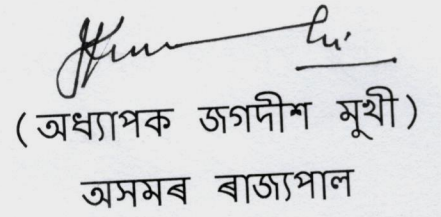 ( অধ্যাপক জগদীশ মুখী )
অসমৰ ৰাজ্যপাল